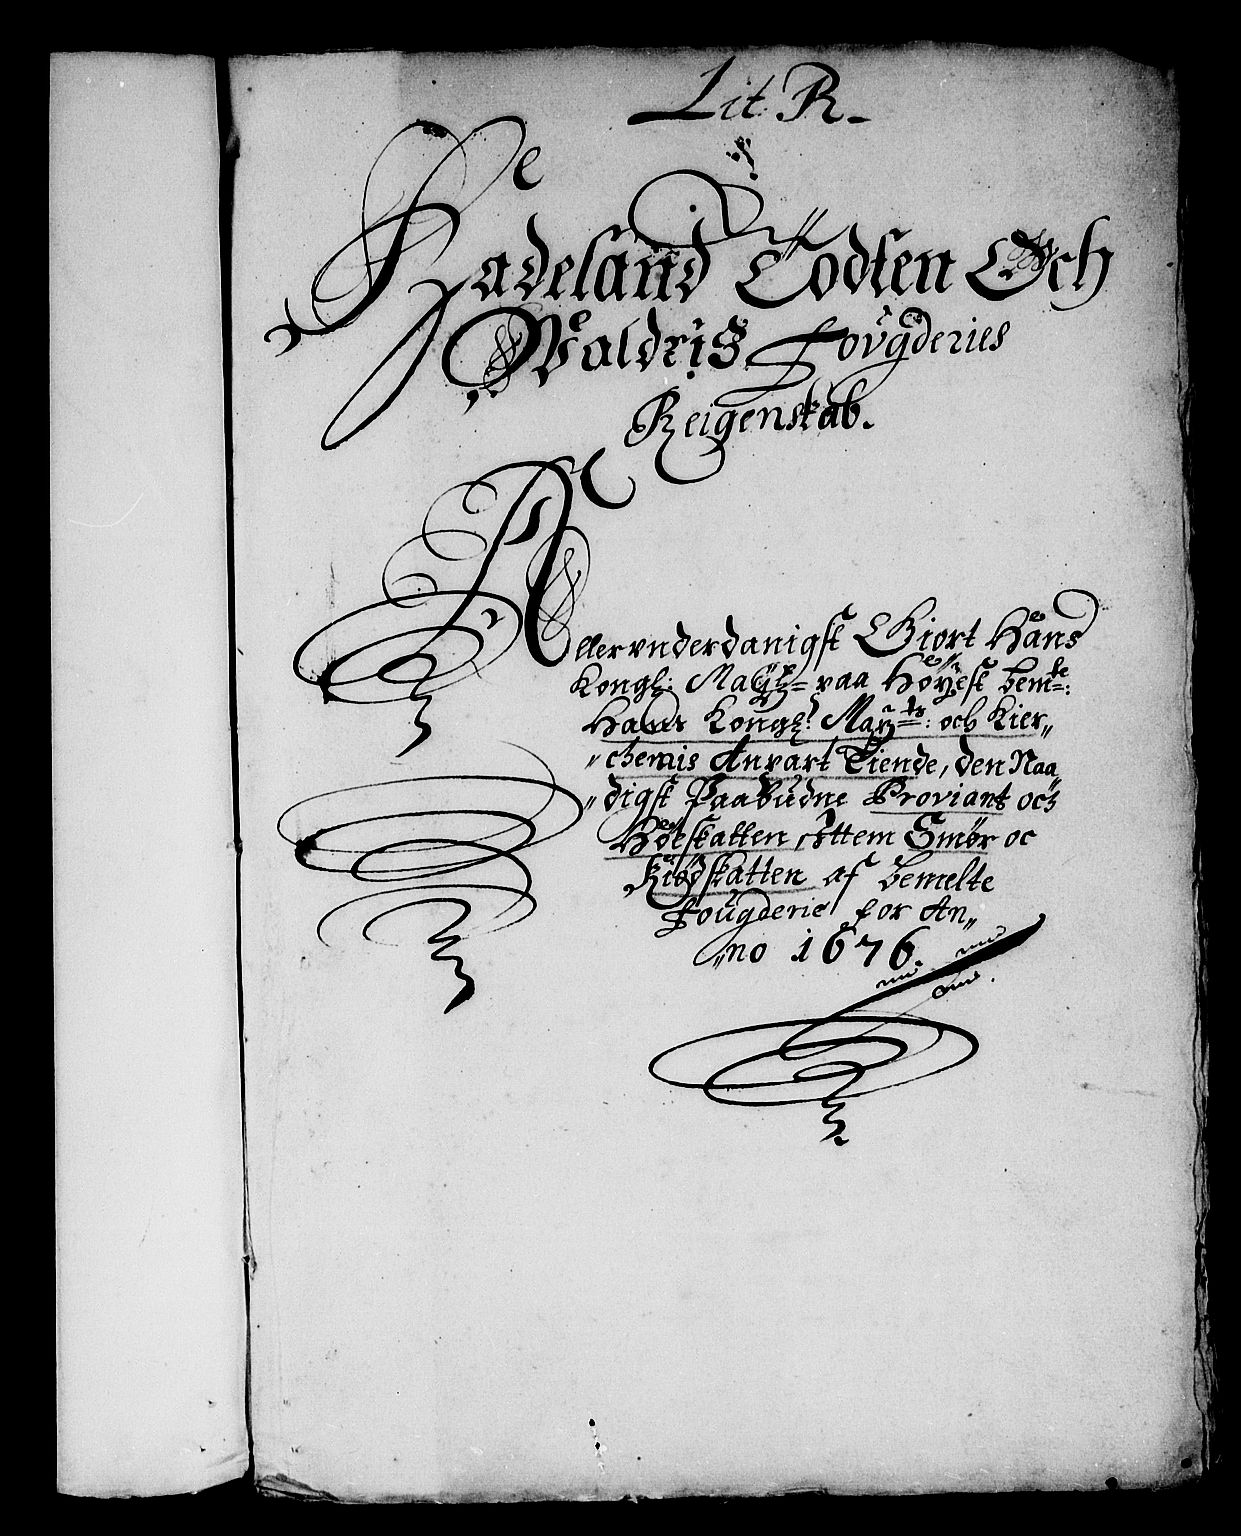 Lit. R.
Hadeland Todten Och
Waldris Fougderies
Reigenskab.
Allervnderdanigst Giort Hans
Kongl: Maytz= paa Höyest bemte:
Hans Kongl: Maytz: och Kier„
„chernis Anpart Tiende, den Naa„
„digst Paabudne Proviant och
Höeskatten, Ittem Smör oc
Kiödskatten af bemelte
Fougderie for An„
„no 1676.